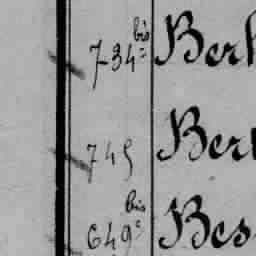 734 bis Berl
745 Ber
649 bis Bes